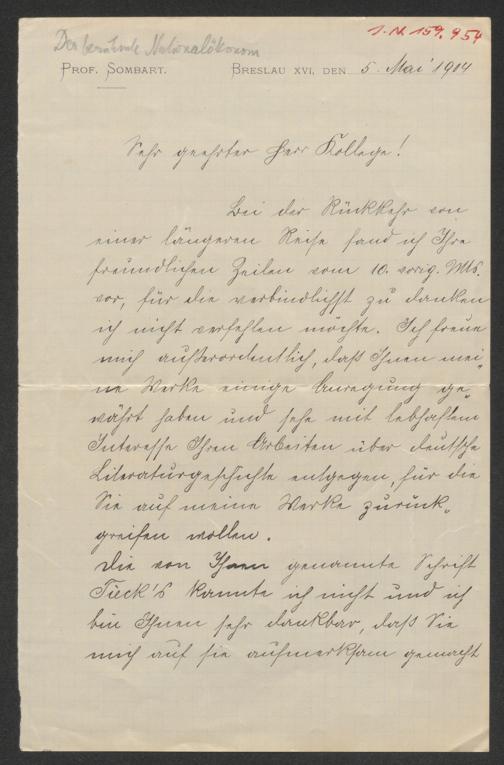 Der berühmte Nationalökonom
I. N. 159.954
PROF. SOMBART. BRESLAU XVI, DEN 5. Mai 1904
Sehr geehrter Herr Kollege!
Bei der Rückkehr von
einer längeren Reise fand ich Ihre
freundlichen Zeilen vom 10. vorig. Mts.
vor, für die verbindlichst zu danken
ich nicht verfehlen möchte. Ich freue
mich außerordentlich, daß Ihnen mei-
ne Werke einige Anregung ge-
währt haben und sehe mit lebhaftem
Interesse Ihren Arbeiten über deutsche
Literaturgeschichte entgegen, für die
Sie auf meine Werke zurück-
greifen wollen.
Die von Ihnen genannte Schrift
Tieck's kannte ich nicht und ich
bin Ihnen sehr dankbar, daß Sie
mich auf sie aufmerksam gemacht